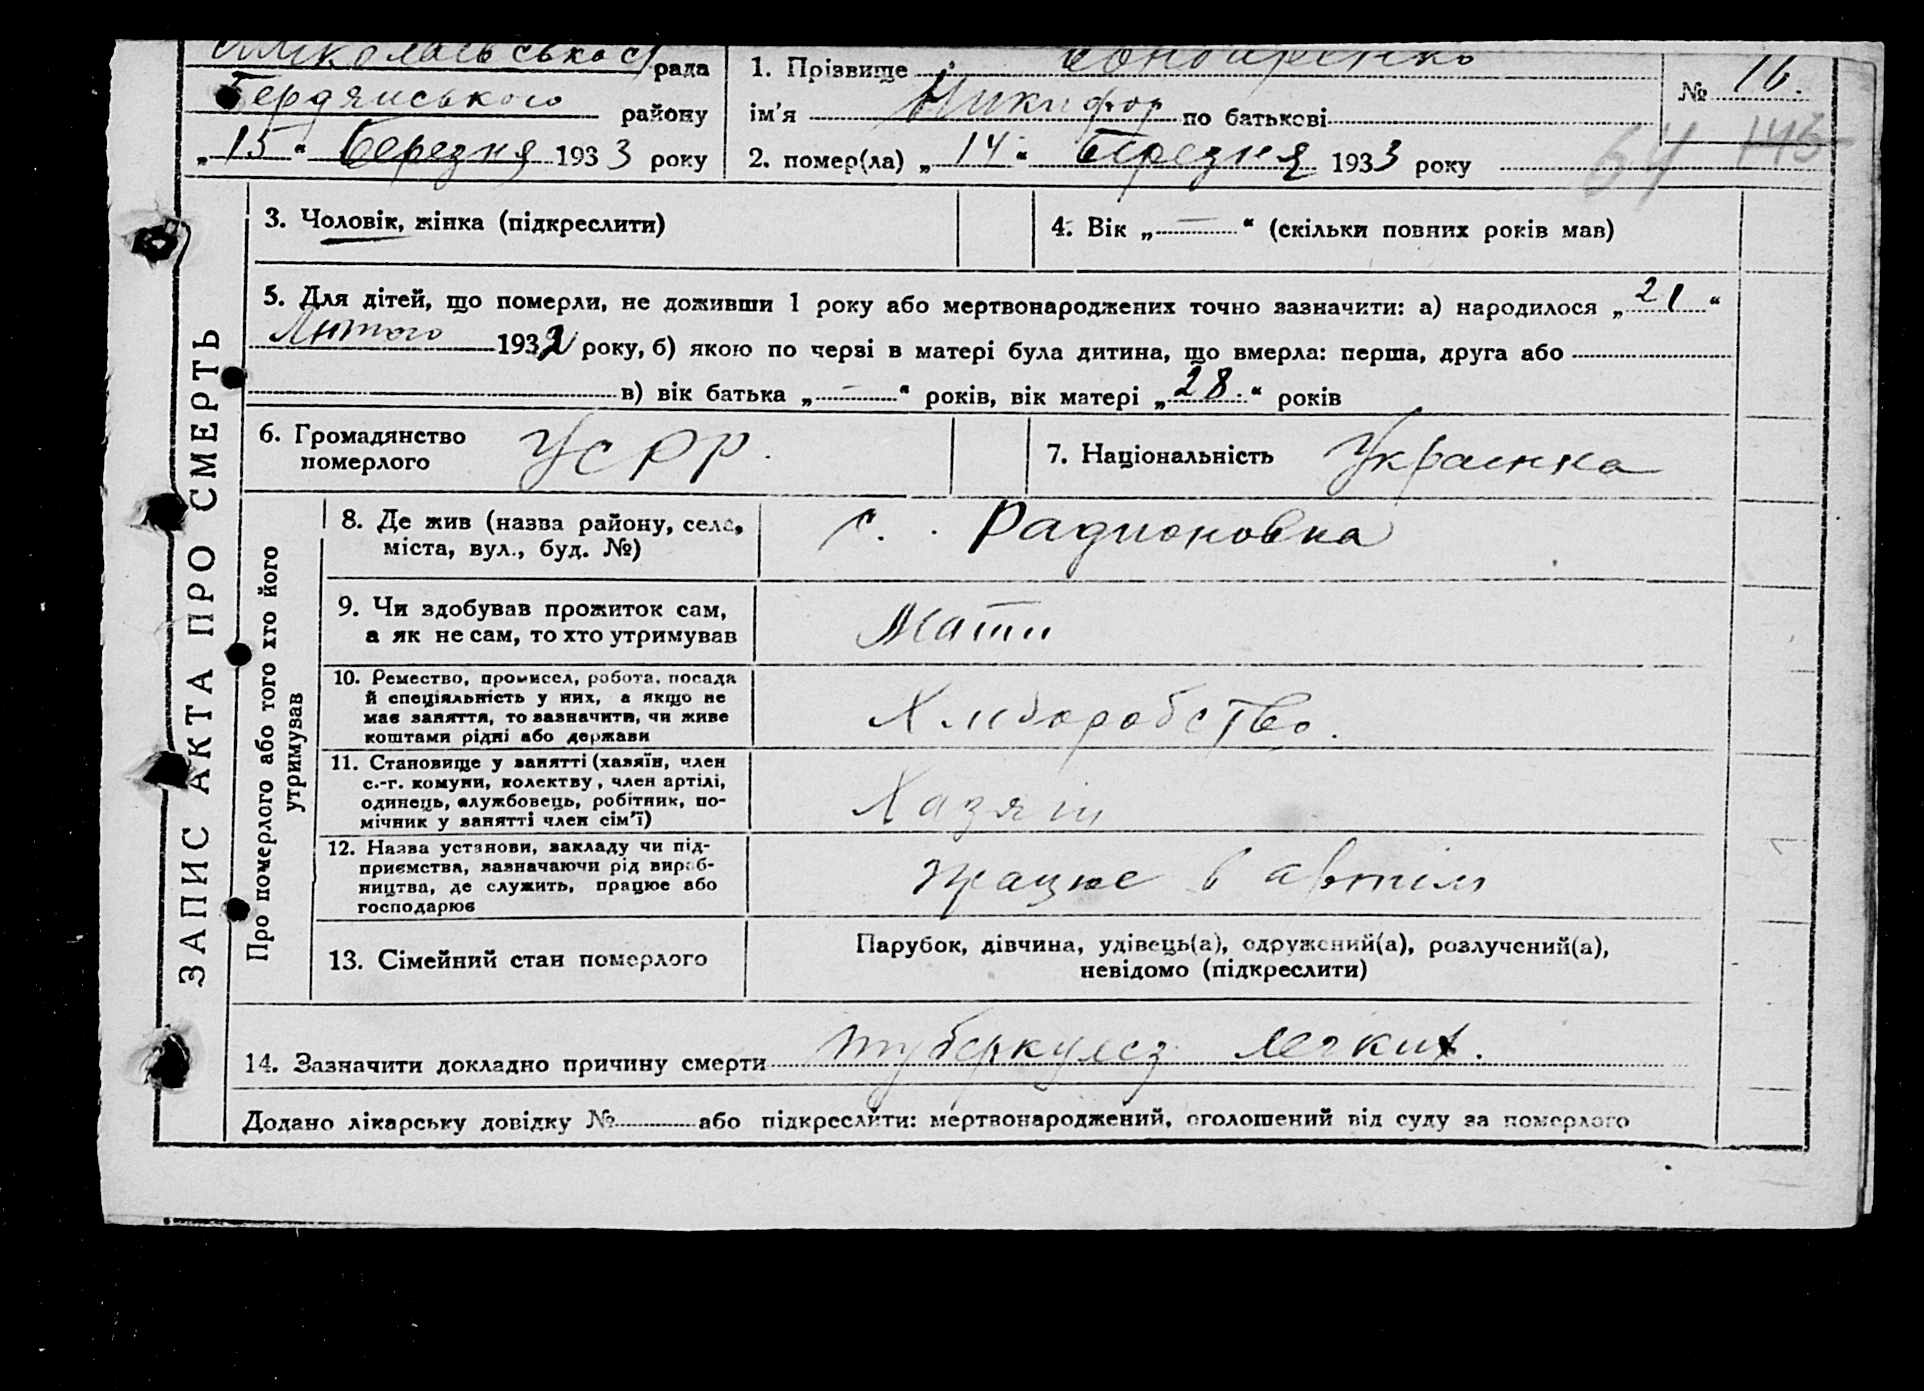 Миколаївська с/рада
Бердянського району
„15“ Березня 1933 року
1. Прізвище Бондаренко
ім'я Никифор по батькові
2. помер(ла) „14“ Березня 1933 року
№ 16.
64 143
ЗАПИС АКТА ПРО СМЕРТЬ
3. Чоловік, жінка (підкреслити)
4. Вік „—“ (скільки повних років мав)
5. Для дітей, що померли, не доживши 1 року або мертвонароджених точно зазначити: а) народилося „21“
Лютого 1932 року, б) якою по черзі в матері була дитина, що вмерла: перша, друга або
в) вік батька „—“ років, вік матері „28.“ років
6. Громадянство
померлого
УСРР.
7. Національність Украинка
Про померлого або того хто його
утримував
8. Де жив (назва району, села,
міста, вул., буд. №)
с. Радионовка
9. Чи здобував прожиток сам,
а як не сам, то хто утримував
Мати
10. Ремество, промисел, робота, посада
й спеціяльність у них, а якщо не
має заняття, то зазначити, чи живе
коштами рідні або держави
Хліборобство.
11. Становище у занятті (хазяїн, член
с.-г. комуни, колектву, член артілі,
одинець, службовець, робітник, по-
мічник у занятті член сім'ї)
Хазяін
12. Назва установи, закладу чи під-
приємства, зазначаючи рід вироб-
ництва, де служить, працює або
господарює
працює в артіли
13. Сімейний стан померлого
Парубок, дівчина, удівець(а), одружений(а), розлучений(а),
невідомо (підкреслити)
14. Зазначити докладно причину смерти туберкулез легких.
Додано лікарську довідку № або підкреслити: мертвонароджений, оголошений від суду за померлого